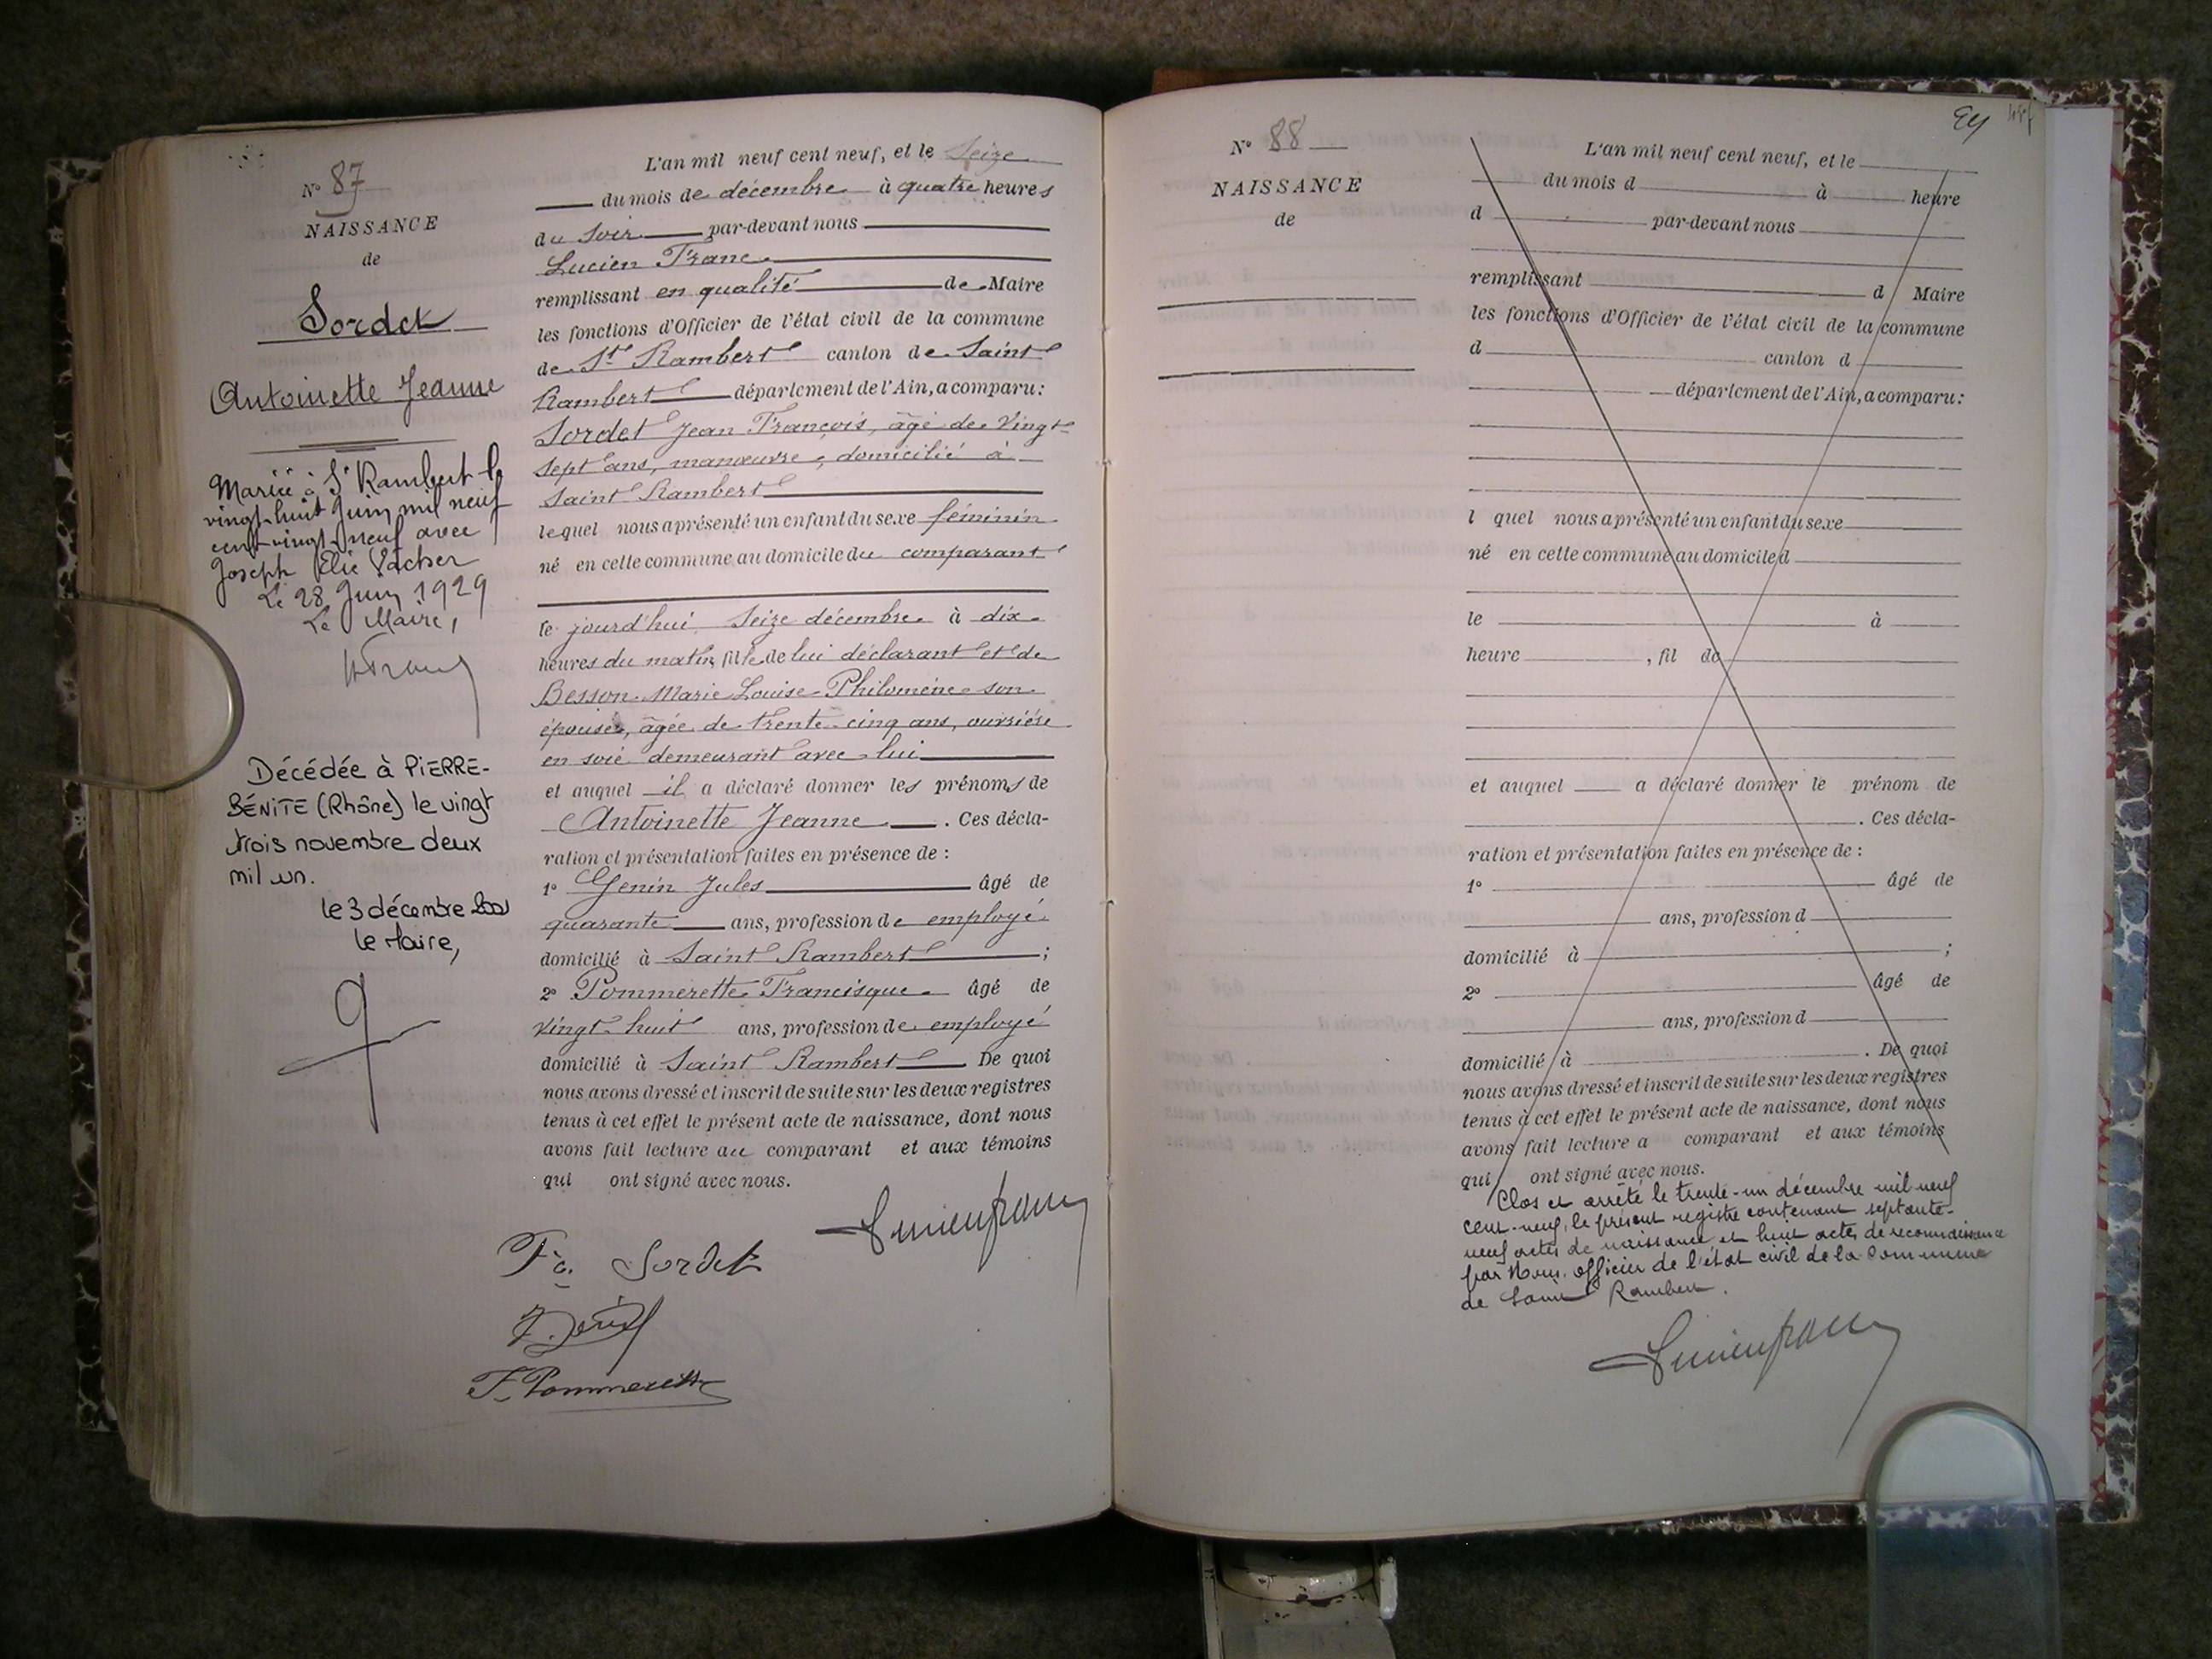 N° 87
NAISSANCE
de
Sordet
Antoinette Jeanne
Mariée à St Rambert le
vingt-huit Juin mil neuf
cent-vingt-neuf avec
Joseph Élie Vacher
Le 28 Juin 1929
Le Maire,
Décédée à PIERRE-
BÉNITE (Rhône) le vingt
trois novembre deux
mil un.
le 3 décembre 2001
le Maire,
L'an mil neuf cent neuf, et le Seize
du mois de décembre à quatre heures
du Soir par-devant nous
Lucien Franc
remplissant en qualité de Maire
les fonctions d'Officier de l'état civil de la commune
de St Rambert canton de Saint
Rambert département de l'Ain, a comparu:
Sordet Jean François, âgé de Vingt
Sept ans, manœuvre, domicilié à
Saint Rambert
lequel nous a présenté un enfant du sexe féminin
né en cette commune au domicile du comparant
le jourd'hui Seize décembre à dix
heures du matin, fille de lui déclarant et de
Besson Marie Louise Philomène son
épouse, âgée de trente-cinq ans, ouvrière
en soie demeurant avec lui
et auquel il a déclaré donner les prénoms de
Antoinette Jeanne. Ces décla-
ration et présentation faites en présence de :
1° Genin Jules âgé de
quarante ans, profession de employé
domicilié à Saint Rambert ;
2° Pommerette Francisque âgé de
Vingt-huit ans, profession de employé
domicilié à Saint Rambert De quoi
nous avons dressé et inscrit de suite sur les deux registres
tenus à cet effet le présent acte de naissance, dont nous
avons fait lecture au comparant et aux témoins
qui ont signé avec nous.
Lucien franc
Fs. Sordet
F. Pommerette
N° 88
NAISSANCE
de
L'an mil neuf cent neuf, et le
du mois d à heure
d par-devant nous
remplissant d Maire
les fonctions d'Officier de l'état civil de la commune
d canton d
département de l'Ain, a comparu:
l quel nous a présenté un enfant du sexe
né en cette commune au domicile d
le à
heure , fil de
et auquel a déclaré donner le prénom de
. Ces décla-
ration et présentation faites en présence de :
1° âgé de
ans, profession d
domicilié à ;
2° âgé de
ans, profession d
domicilié à . De quoi
nous avons dressé et inscrit de suite sur les deux registres
tenus à cet effet le présent acte de naissance, dont nous
avons fait lecture a comparant et aux témoins
qui ont signé avec nous.
Clos et arrêté le trente-un décembre mil neuf
cent-neuf, le présent registre contenant septante-
neuf actes de naissance et huit actes de reconnaissance
par Nous, officier de l'état civil de la Commune
de Saint Rambert.
Lucien franc